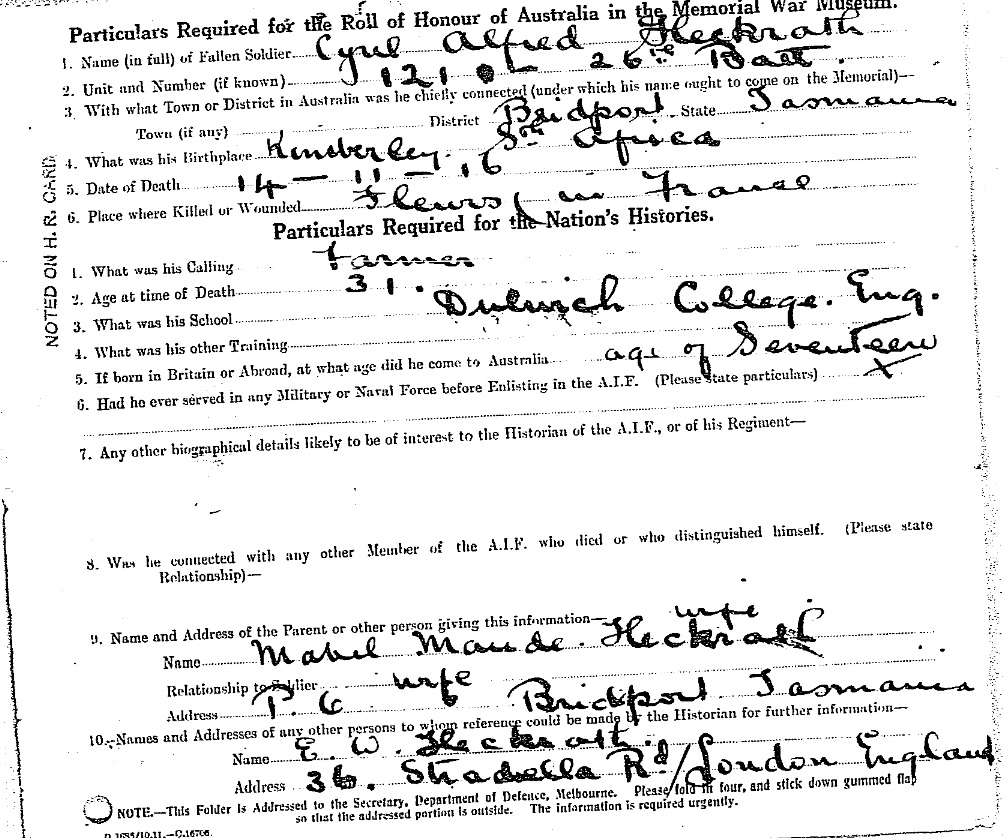 Particulars Required for the Roll of Honour of Australia in the Memorial War Museum.
1. Name (in full) of Fallen Soldier Cyril Alfred Heckrath
2. Unit and Number (if known) 1210 26th Batt.
3 With what Town or District in Australia was he chiefly connected (under which his name ought to come on the Memorial)—
Town (if any) District Bridport State Tasmania
4. What was his Birthplace Kimberley. Sth Africa
5. Date of Death 14 – 11 – 16
6. Place where Killed or Wounded Fleurs, in France
Particulars Required for the Nation's Histories.
1. What was his Calling Farmer
2. Age at time of Death 31.
3. What was his School Dulwich College. Eng.
4. What was his other Training
5. If born in Britain or Abroad, at what age did he come to Australia age of Seventeen
6. Had he ever served in any Military or Naval Force before Enlisting in the A.I.F. (Please state particulars) X
7. Any other biographical details likely to be of interest to the Historian of the A.I.F., or of his Regiment—
8. Was he connected with any other Member of the A.I.F. who died or who distinguished himself. (Please state
Relationship)—
9. Name and Address of the Parent or other person giving this information— wife
Name Mabel Maude. Heckrath
Relationship to Soldier wife
Address P. O Bridport Tasmania
10.—Names and Addresses of any other persons to whom reference could be made by the Historian for further information—
Name E. W. Heckrath.
Address 36. Stradella Rd/London England
NOTE.—This Folder is Addressed to the Secretary, Department of Defence, Melbourne. Please fold in four, and stick down gummed flap
so that the addressed portion is outside. The information is required urgently.
NOTED ON H. R. CARD